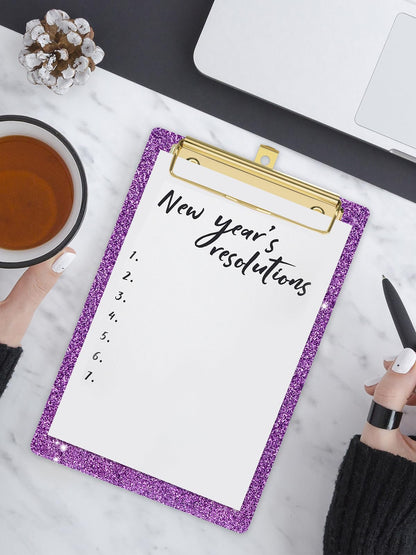 New year's
resolutions
1.
2.
3.
4.
5.
6.
7.